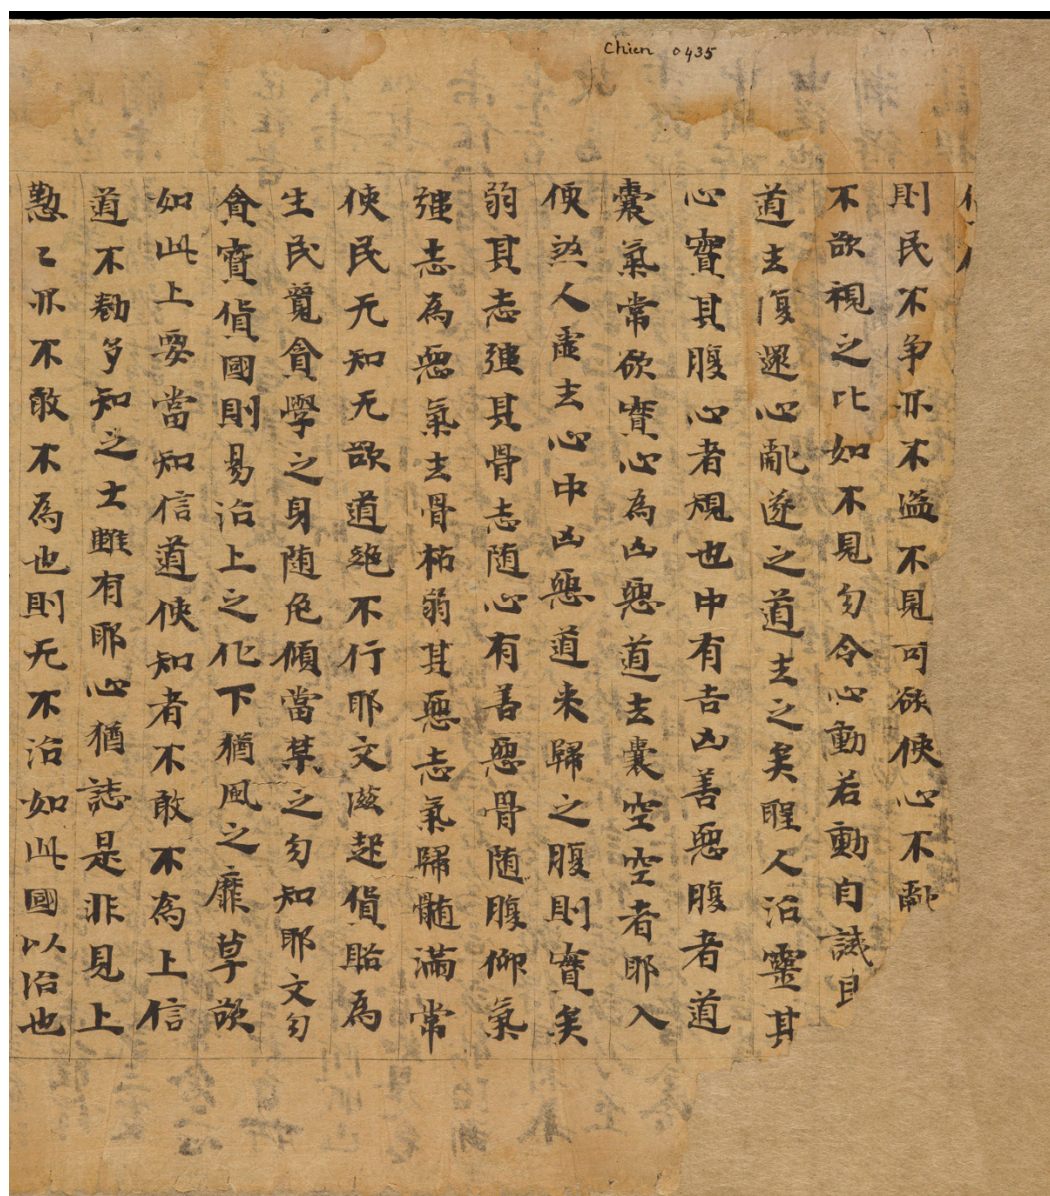 Chien 0435
則民不争亦不盗不見可欲使心不亂
不欲視之比如不見勿令心動若動自誡
道去復還心亂遂之道去之矣聖人治靈其
心實其腹心者規也中有吉凶善惡腹者道
囊氣常欲實心為凶惡道去囊空空者耶入
便煞人虚去心中凶惡道来歸之腹則實矣
弱其志强其骨志随心有善惡骨随腹仰氣
强志為惡氣去骨枯弱其惡志氣歸髓滿常
使民无知无欲道絶不行耶文滋起貨賂為
生民覽貪學之身随危傾當禁之勿知耶文勿
貪寳貨國則易治上之化下猶風之靡草欲
如此上要當知信道使知者不敢不為上信
道不勌多知之士雖有耶心猶誌是非見上
懃〻亦不敢不為也則无不治如此國以治也